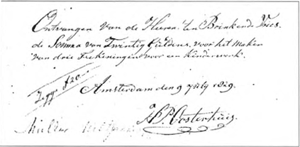 Ontvangen van de Heeren ten Brink en de Vries
de Somma van Twintig Guldens, voor het maken
van drie Teekeningen voor een Kinderwerk.
Zegge f20.-
Amsterdam den 9 July 1829.
H.P. Oosterhuis